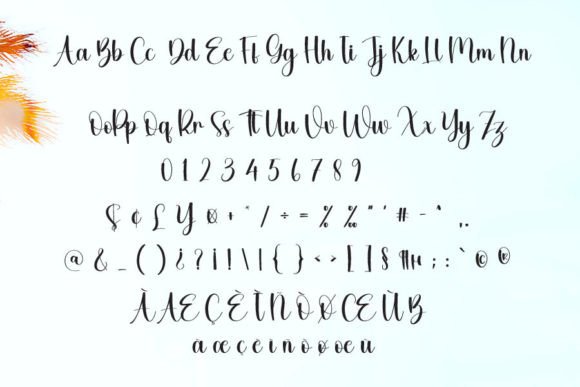 Aa Bb Cc Dd Ee Ff Gg Hh Ii Jj Kk Ll Mm Nn
Oo Pp Qq Rr Ss Tt Uu Vv Ww Xx Yy Zz
0 1 2 3 4 5 6 7 8 9
$ ¢ £ ¥ ¤ + * / ÷ = % ‰ " ' # - ^ , .
@ & _ ( ) ¿ ? ¡ ! \ | { } < > [ ] § ¶ ; : ` © ®
À Æ Ç È Ì Ñ Ò Ø Œ Ù ß
à æ ç è ì ñ ò ø œ ù